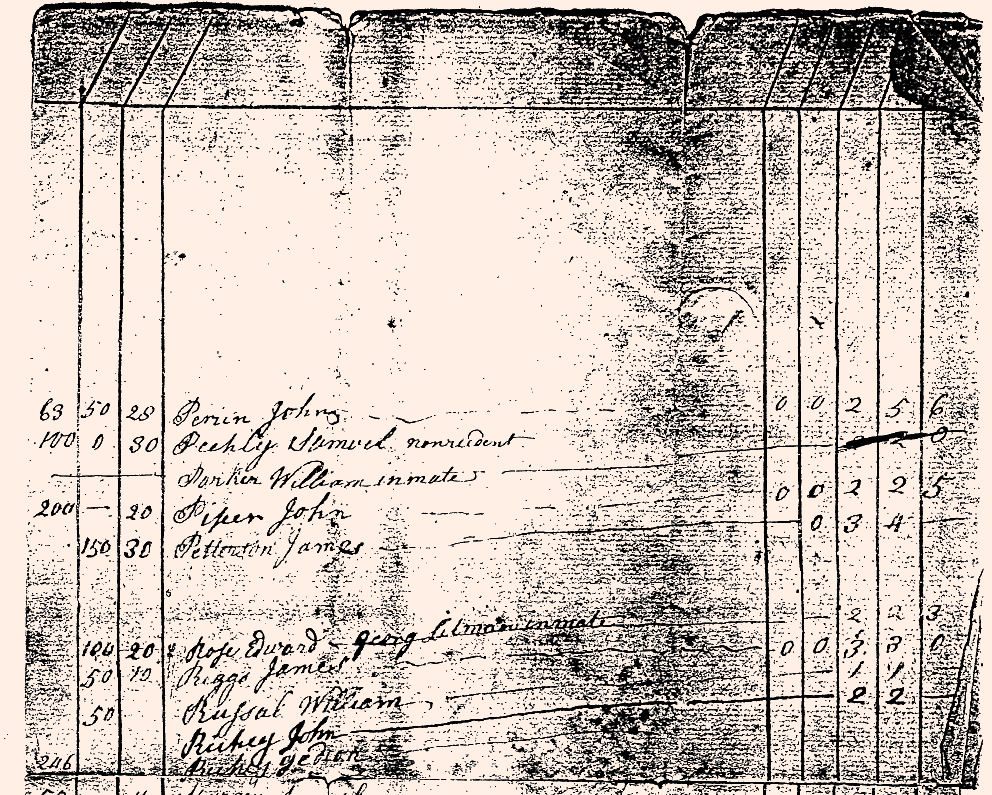 63 50 28 Perin John 0 0 2 5 6
100 0 30 Peehly Samuel nonresident
Parker William inmate
200 — 20 Piper John 0 0 2 2 5
150 30 Petterson James 0 3 4
100 20 Rose Edward georg inmate 2 2 3
50 10 Riggs James 0 0 3 3 0
50 Russal William 1 1
Richey John 2 2
246 Richey gedion